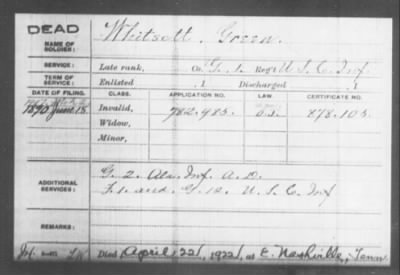 DEAD
NAME OF SOLDIER:
Whitsott, Green.
SERVICE:
Late rank, Co. G. 1. Reg't U S C Inf.
TERM OF SERVICE:
Enlisted , 1 Discharged , 1
DATE OF FILING. CLASS. APPLICATION NO. LAW CERTIFICATE NO.
1890 June 18 Invalid, 782.985. 878.105.
Widow,
Minor,
ADDITIONAL SERVICES:
G. 2. Ala. Inf. A. D.
F. 1. and G. 10. U. S. C. Inf
REMARKS:
Died April 22, 1922, at E. Nashville, Tenn.